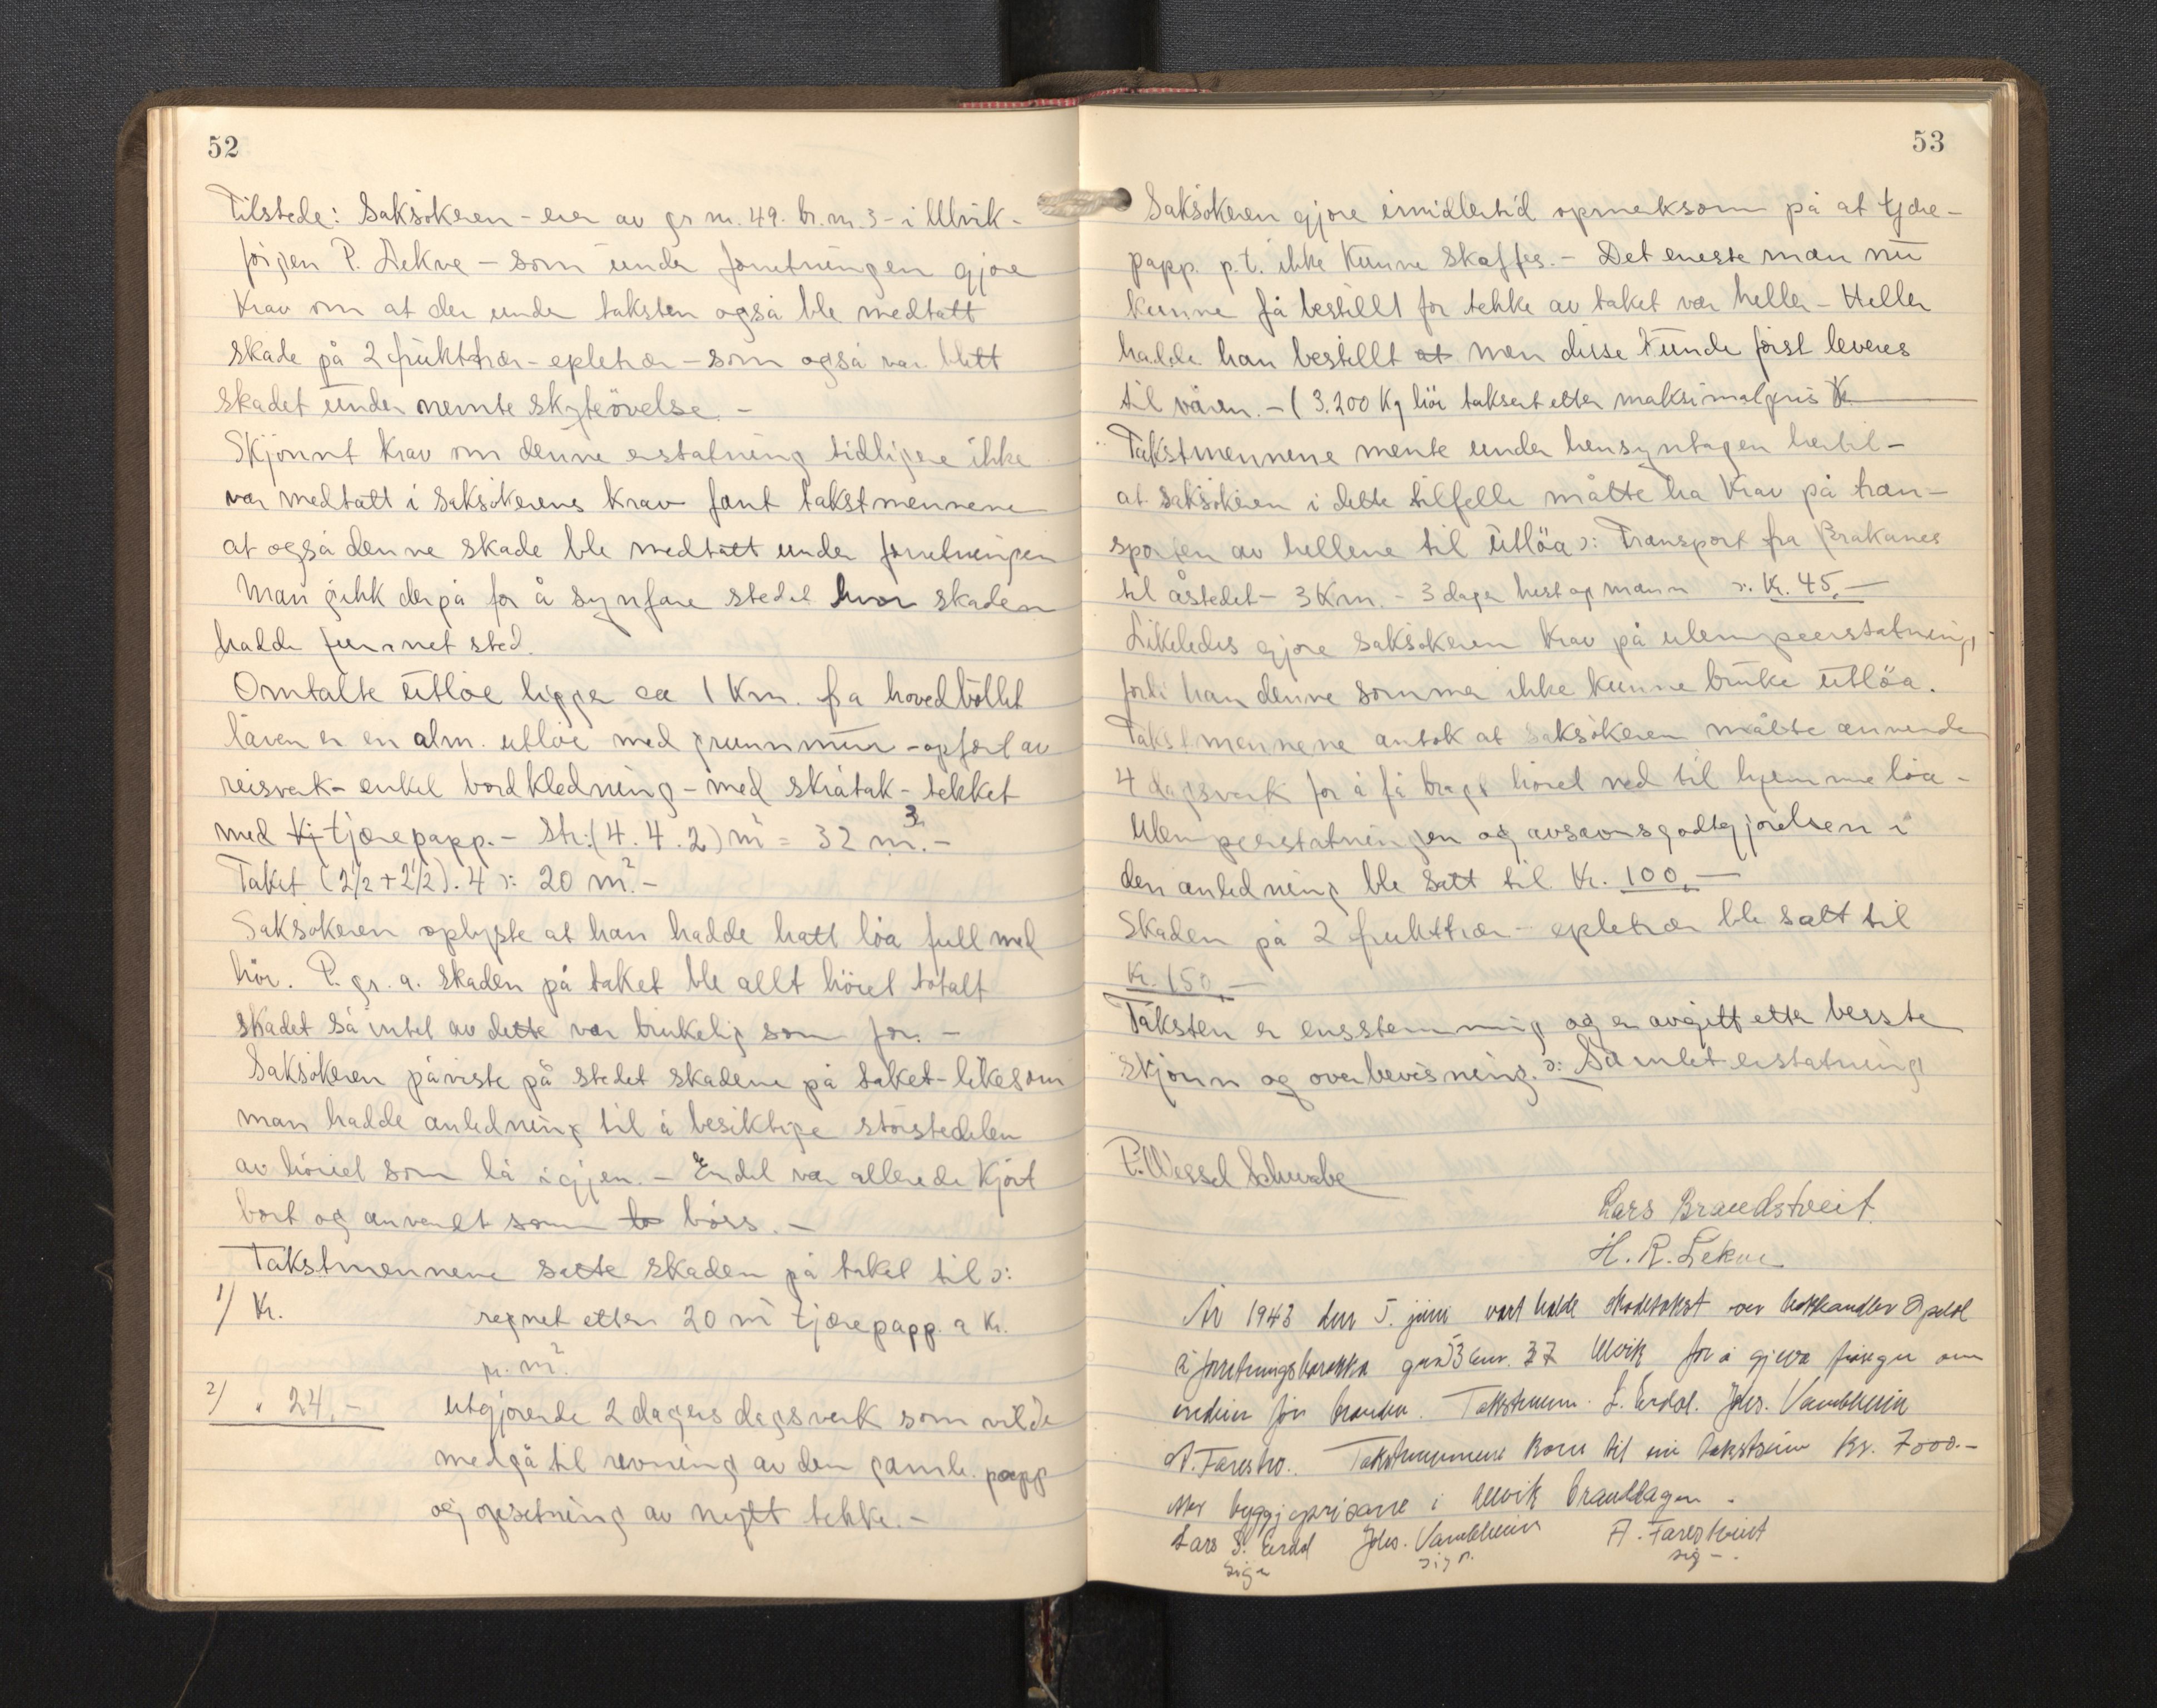 52
Tilstede: Saksökeren - eier av gr. nr. 49. br. nr. 3 - i Ulvik -
Jörgen P. Lekve - som under forretningen gjore
Krav om at der under taksten også ble medtatt
skade på 2 frukttrær - epletrær - som også var blitt
skadet under nemte skyteövelse. -
Skjönnt krav om denne erstatning tidligere ikke
var medtatt i saksökerens krav fant takstmennene
at også denne skade ble medtatt under forretningen
Man gikk derpå for å synfare stedet hvor skaden
hadde funnet sted.
Omtalte utlöe ligger ca 1 Km. fra hovedböllet
låven er en alm. utlöe med grunnmur - opfört av
reisverk - enkel bordkledning - med skråtak - tekket
med tj tjærepapp. - Str: (4. 4. 2) m = 32 m³. -
Taket (2½ + 2½). 4 ɔ: 20 m². -
Saksökeren oplyste at han hadde hatt löa full med
höi. P. gr. a. skaden på taket ble allt höiet totalt
skadet så intet av dette var brukelig som for. -
Saksökeren påviste på stedet skadene på taket - likesom
man hadde anledning til å besiktige störstedelen
av höiet som lå igjen. - Endel var allerede kjört
bort og anvendt som bo böss. -
Takstmennene satte skaden på taket til ɔ:
1/ Kr. regnet etter 20 m² tjærepapp. a Kr.
pr. m².
2/ " 24,- utgjorende 2 dagers dagsverk som vilde
medgå til revning av den gamle papp
og opsetning av nytt tekke. -
53
Saksökeren gjore imidlertid opmerksom på at tjære-
papp. p.t. ikke kunne skaffes. - Det eneste man nu
kunne få bestillt for tekke av taket var heller - Heller
hadde han bestillt at men disse kunde först leveres
til våren. - ( 3.200 Kg höi taksert etter maksimalpris Kr.
Takstmennene mente under hensyntagen hertil -
at saksökeren i dette tilfelle måtte ha krav på tran-
sporten av hellene til utlöa ɔ: Transport fra Brakanes
til åstedet - 3 Km. - 3 dager hest og mann ɔ: Kr. 45,-
Likeledes gjore saksökeren krav på ulempeerstatning
fordi han denne sommer ikke kunne bruke utlöa.
Takstmennene antok at saksökeren måtte anvende
4 dagsverk for å få bragt höiet ned til hjemmelöa -
Ulempeerstatningen og avsavnsgodtgjörelsen i
den anledning ble satt til Kr. 100,-
Skaden på 2 frukttrær - epletrær ble satt til
Kr. 150,-
Taksten er ensstemmig og er avgitt etter beste
skjönn og overbevisning. ɔ: Samlet erstatning
P. Wessel Schwabe
Lars Brandstveit
H. R. Lekve
År 1943 den 5. juni vart halde skadetakst over
å forretningsbarakka 3 37 Ulvik for å gjeva
Takstmenn. L. Erdal. Johs. Vambheim
A. Farestv. Takstmennene kom til ein takstsum Kr. 7000.-
byggjeprisane i Ulvik branntlagen.
Lars S. Erdal Johs. Vambheim A. Farestveit
sign sign. sig -.